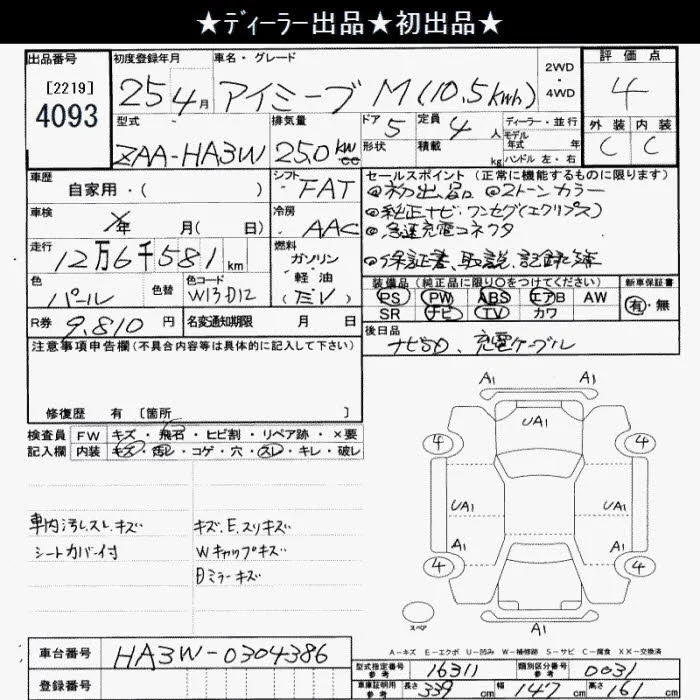 ★ディーラー出品★初出品★
出品番号
[2219]
4093
初度登録年月
25年4月
車名・グレード
アイミーブ M(10.5kwh)
2WD
・
4WD
評価点
4
外装 内装
C C
型式
ZAA-HA3W
排気量
250 kw cc
ドア 5
形状
定員 4人
積載 kg
ディーラー・並行
モデル年式 年式
ハンドル 左・右
車歴
自家用・( )
シフト
FAT
車検
年 月( 日)
冷房
AAC
走行
12万6千581km
燃料
ガソリン・軽油
(EV)
色
パール
色替
色コード
W13D12
R券
9,810円
名変通知期限 月 日
セールスポイント(正常に機能するものに限ります)
◎初出品 ◎2トーンカラー
◎純正ナビ.ワンセグ(エクリプス)
◎急速充電コネクタ
◎保証書、取説、記録簿
装備品(純正品に限り○をつけてください)
新車保証書
PS PW ABS エアB AW
SR ナビ TV カワ
有・無
後日品
ナビSD、充電ケーブル
注意事項申告欄(不具合内容等は具体的に記入して下さい)
修復歴 有 [箇所 ]
検査員
記入欄
FW キズ・飛石・ヒビ割・リペア跡・×要
内装 キズ・汚れ・コゲ・穴・スレ・キレ・破レ
車内汚レ.スレ.キズ
シートカバー付
キズ.E.スリキズ
Wキャップキズ
Bミラーキズ
A1 A1
UA1
4 4
UA1 UA1
A1 A1
4 4
スペア
A1
A−キズ E−エクボ U−凹み W−補修跡 S−サビ C−腐食 XX−交換済
車台番号 HA3W-0304386
登録番号
型式指定番号 参考 16311
類別区分番号 参考 0031
車庫証明用 参考 長さ 339cm 幅 147cm 高さ 161cm